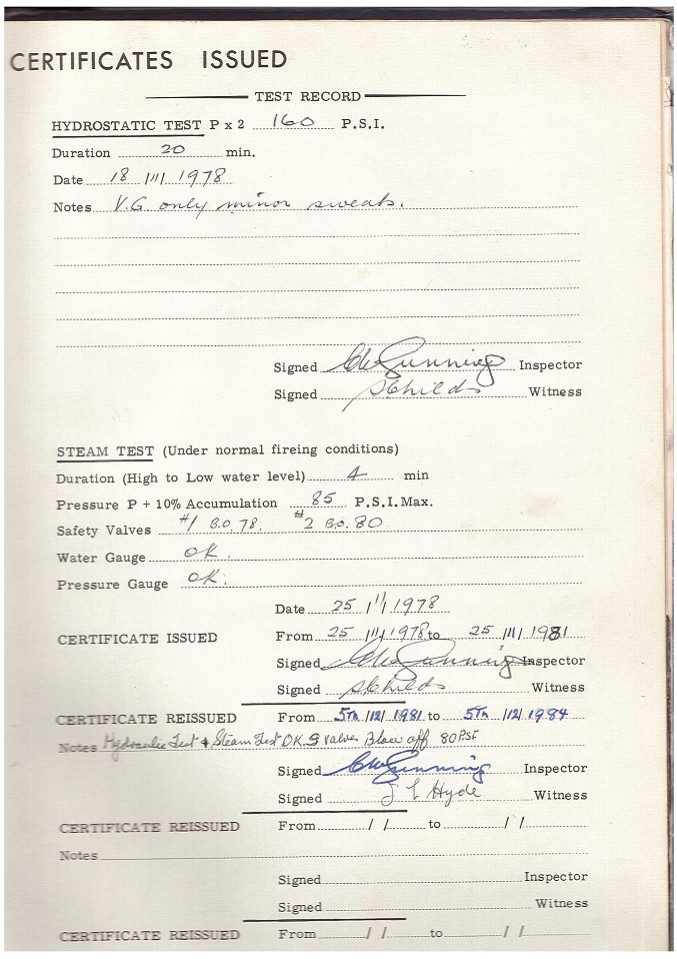 CERTIFICATES ISSUED
TEST RECORD
HYDROSTATIC TEST P x 2 160 P.S.I.
Duration 20 min.
Date 18 /III/ 1978
Notes V.G. only minor sweats.
Signed Inspector
Signed SChilds Witness
STEAM TEST (Under normal fireing conditions)
Duration (High to Low water level) 4 min
Pressure P + 10% Accumulation 85 P.S.I. Max.
Safety Valves #1 B.O. 78. #2 B.O. 80
Water Gauge OK.
Pressure Gauge OK.
Date 25 / / 1978
CERTIFICATE ISSUED From 25 / / 1978 to 25 /III/ 1981
Signed Inspector
Signed SChilds Witness
CERTIFICATE REISSUED From 5TH /12/ 1981 to 5TH /12/ 1984
Notes Hydraulic Test & Steam Test OK. S Valves Blow off 80 PSI
Signed Inspector
Signed J L Hyde Witness
CERTIFICATE REISSUED From / / to / /
Notes
Signed Inspector
Signed Witness
CERTIFICATE REISSUED From / / to / /